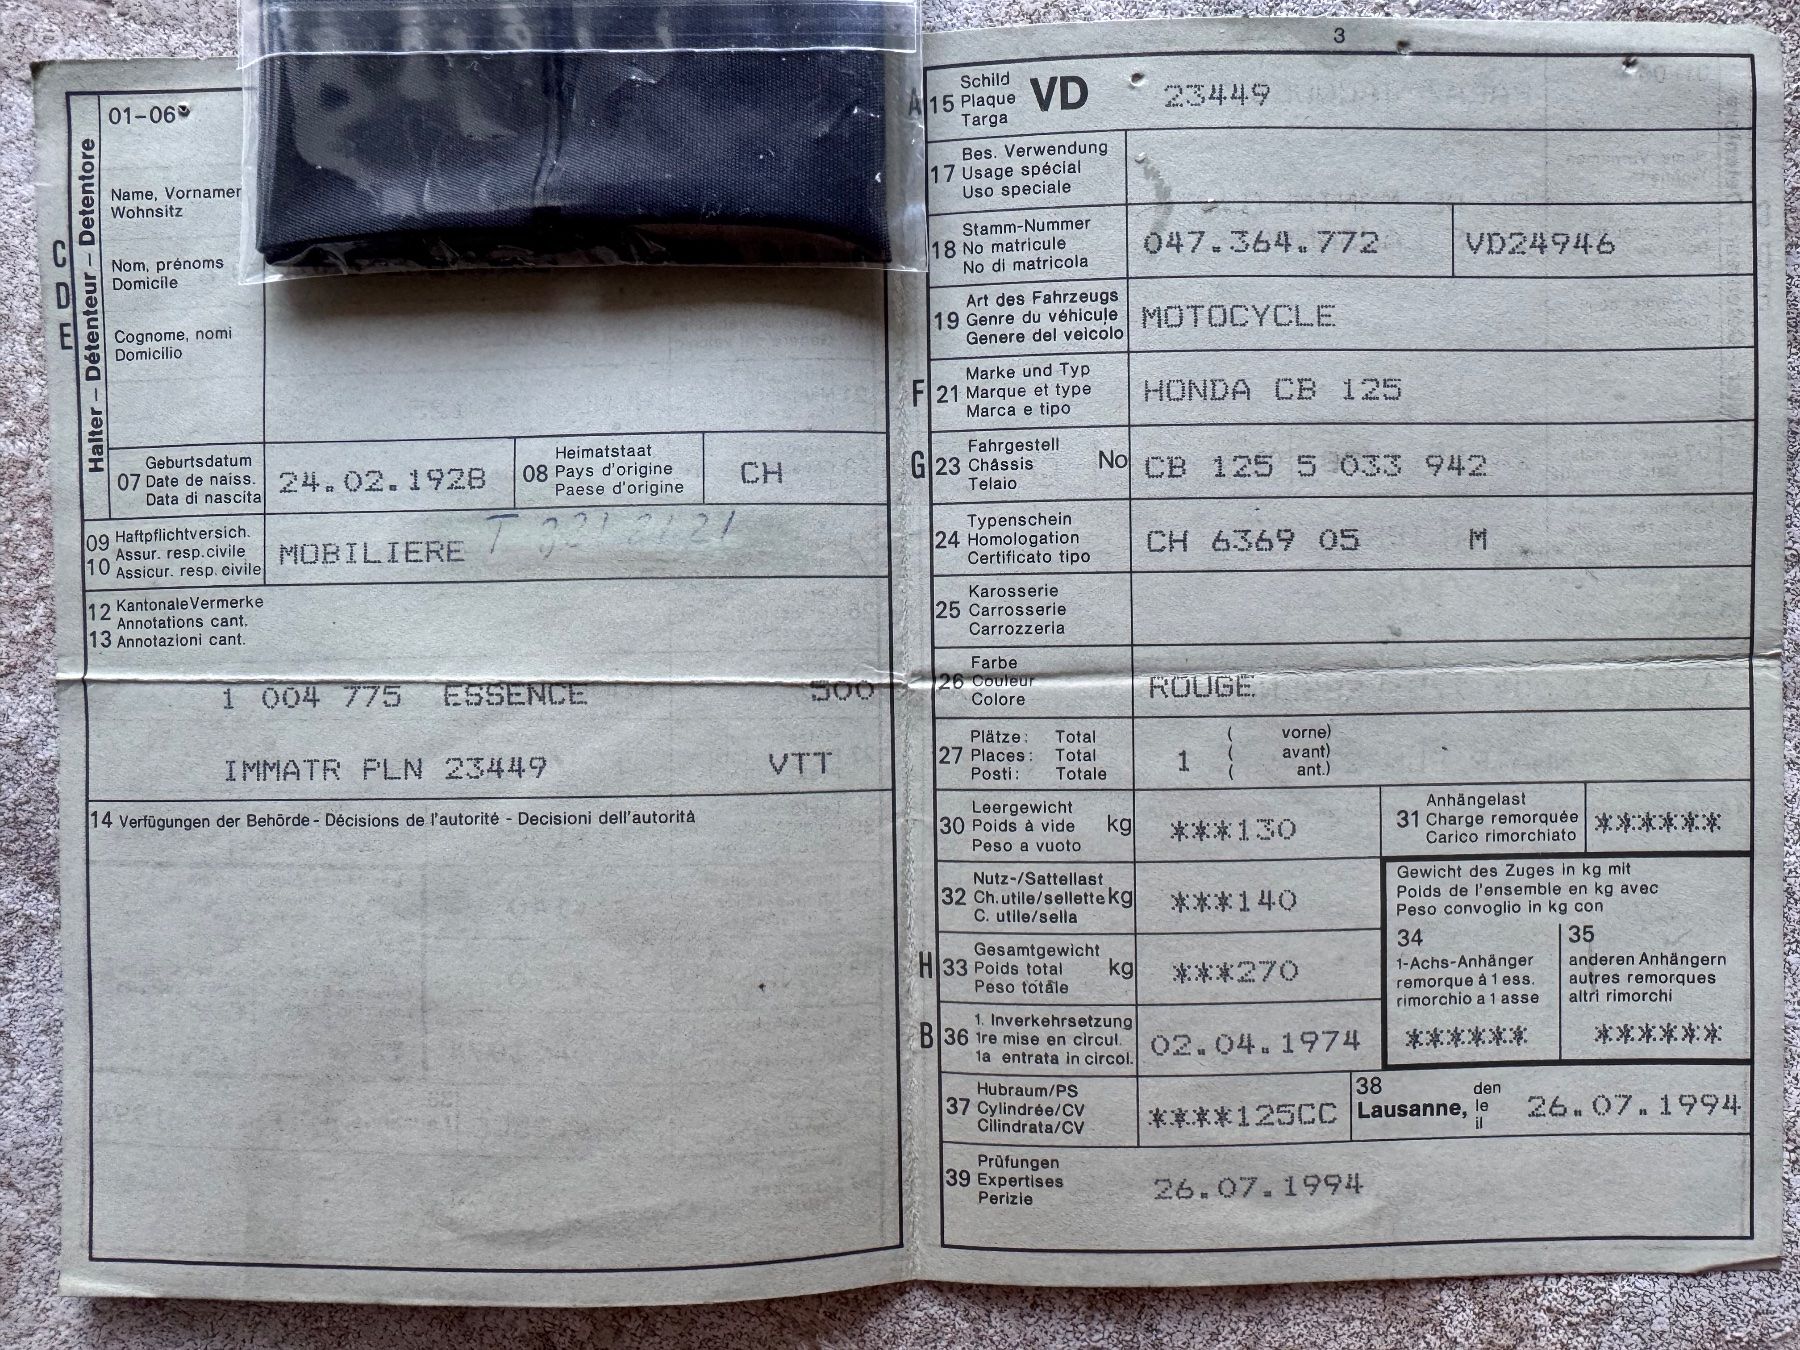 3
01-06
Halter – Détenteur – Detentore
C
D
E
Name, Vornamen
Wohnsitz
Nom, prénoms
Domicile
Cognome, nomi
Domicilio
07 Geburtsdatum
Date de naiss.
Data di nascita
24.02.1928
08 Heimatstaat
Pays d'origine
Paese d'origine
CH
09 Haftpflichtversich.
Assur. resp. civile
10 Assicur. resp. civile
MOBILIERE
12 Kantonale Vermerke
Annotations cant.
13 Annotazioni cant.
1 004 775 ESSENCE 500
IMMATR PLN 23449 VTT
14 Verfügungen der Behörde - Décisions de l'autorité - Decisioni dell'autorità
A 15 Schild
Plaque
Targa
VD 23449
17 Bes. Verwendung
Usage spécial
Uso speciale
18 Stamm-Nummer
No matricule
No di matricola
047.364.772 VD24946
19 Art des Fahrzeugs
Genre du véhicule
Genere del veicolo
MOTOCYCLE
F 21 Marke und Typ
Marque et type
Marca e tipo
HONDA CB 125
G 23 Fahrgestell
Châssis No
Telaio
CB 125 5 033 942
24 Typenschein
Homologation
Certificato tipo
CH 6369 05 M
25 Karosserie
Carrosserie
Carrozzeria
26 Farbe
Couleur
Colore
ROUGE
27 Plätze: Total ( vorne)
Places: Total 1 ( avant)
Posti: Totale ( ant.)
30 Leergewicht
Poids à vide kg
Peso a vuoto
***130
31 Anhängelast
Charge remorquée
Carico rimorchiato
******
32 Nutz-/Sattellast
Ch. utile/sellette kg
C. utile/sella
***140
H 33 Gesamtgewicht
Poids total kg
Peso totale
***270
Gewicht des Zuges in kg mit
Poids de l'ensemble en kg avec
Peso convoglio in kg con
34
1-Achs-Anhänger
remorque à 1 ess.
rimorchio a 1 asse
******
35
anderen Anhängern
autres remorques
altri rimorchi
******
B 36 1. Inverkehrsetzung
1re mise en circul.
1a entrata in circol.
02.04.1974
37 Hubraum/PS
Cylindrée/CV
Cilindrata/CV
****125CC
38
Lausanne, den
le
il
26.07.1994
39 Prüfungen
Expertises
Perizie
26.07.1994